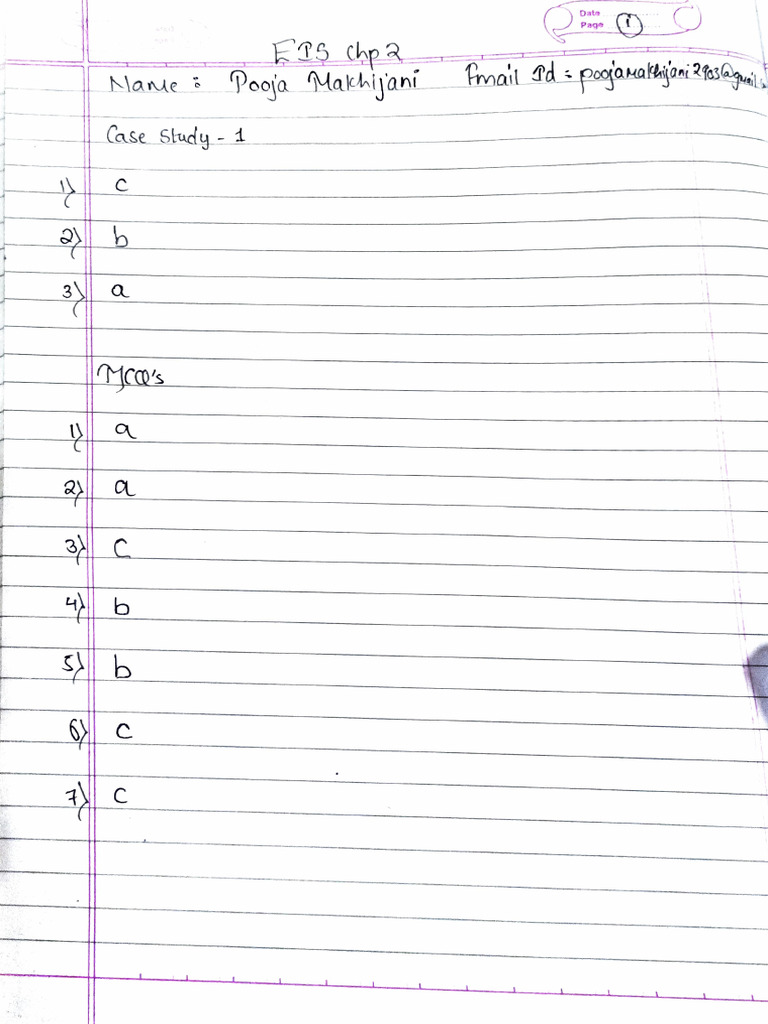 Date
Page 1
EIS Chp 2
Name : Pooja Makhijani Email Id = poojamakhijani2903@gmail.
Case Study - 1
1) c
2) b
3) a
MCQ's
1) a
2) a
3) c
4) b
5) b
6) c
7) c